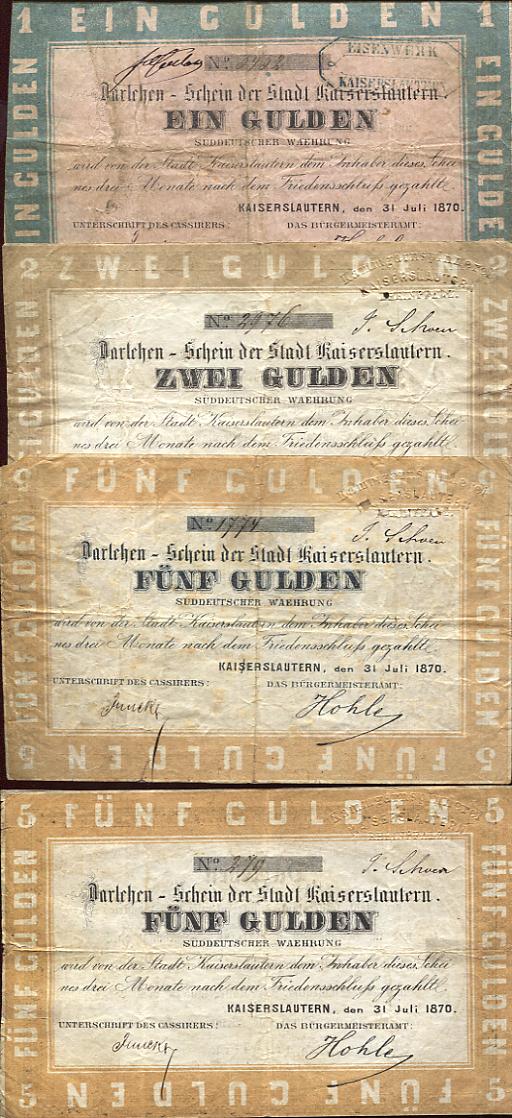 1 EIN GULDEN 1
EIN GULDEN
EIN GULDEN
No
EISENWERK
KAISERSLAUTERN
Darlehen - Schein der Stadt Kaiserslautern.
EIN GULDEN
SÜDDEUTSCHER WAEHRUNG
wird von der Stadt Kaiserslautern dem Inhaber dieses Schei
nes drei Monate nach dem Friedensschluß gezahlt.
KAISERSLAUTERN, den 31 Juli 1870.
UNTERSCHRIFT DES CASSIRERS: DAS BÜRGERMEISTERAMT:
2 ZWEI GULDEN 2
ZWEI GULDEN
ZWEI GULDEN
KAISERSLAUTERN
No 2976 J. Schoen
Darlehen - Schein der Stadt Kaiserslautern.
ZWEI GULDEN
SÜDDEUTSCHER WAEHRUNG
wird von der Stadt Kaiserslautern dem Inhaber dieses Schei
nes drei Monate nach dem Friedensschluß gezahlt.
5 FÜNF GULDEN 5
FÜNF GULDEN
FÜNF GULDEN
KAISERSLAUTERN
No 1774 J. Schoen
Darlehen - Schein der Stadt Kaiserslautern.
FÜNF GULDEN
SÜDDEUTSCHER WAEHRUNG
wird von der Stadt Kaiserslautern dem Inhaber dieses Schei
nes drei Monate nach dem Friedensschluß gezahlt.
KAISERSLAUTERN, den 31 Juli 1870.
UNTERSCHRIFT DES CASSIRERS: DAS BÜRGERMEISTERAMT:
Hohle
5 FÜNF GULDEN 5
5 FÜNF GULDEN 5
FÜNF GULDEN
FÜNF GULDEN
No 279 J. Schoen
Darlehen - Schein der Stadt Kaiserslautern.
FÜNF GULDEN
SÜDDEUTSCHER WAEHRUNG
wird von der Stadt Kaiserslautern dem Inhaber dieses Schei
nes drei Monate nach dem Friedensschluß gezahlt.
KAISERSLAUTERN, den 31 Juli 1870.
UNTERSCHRIFT DES CASSIRERS: DAS BÜRGERMEISTERAMT:
Hohle
5 FÜNF GULDEN 5